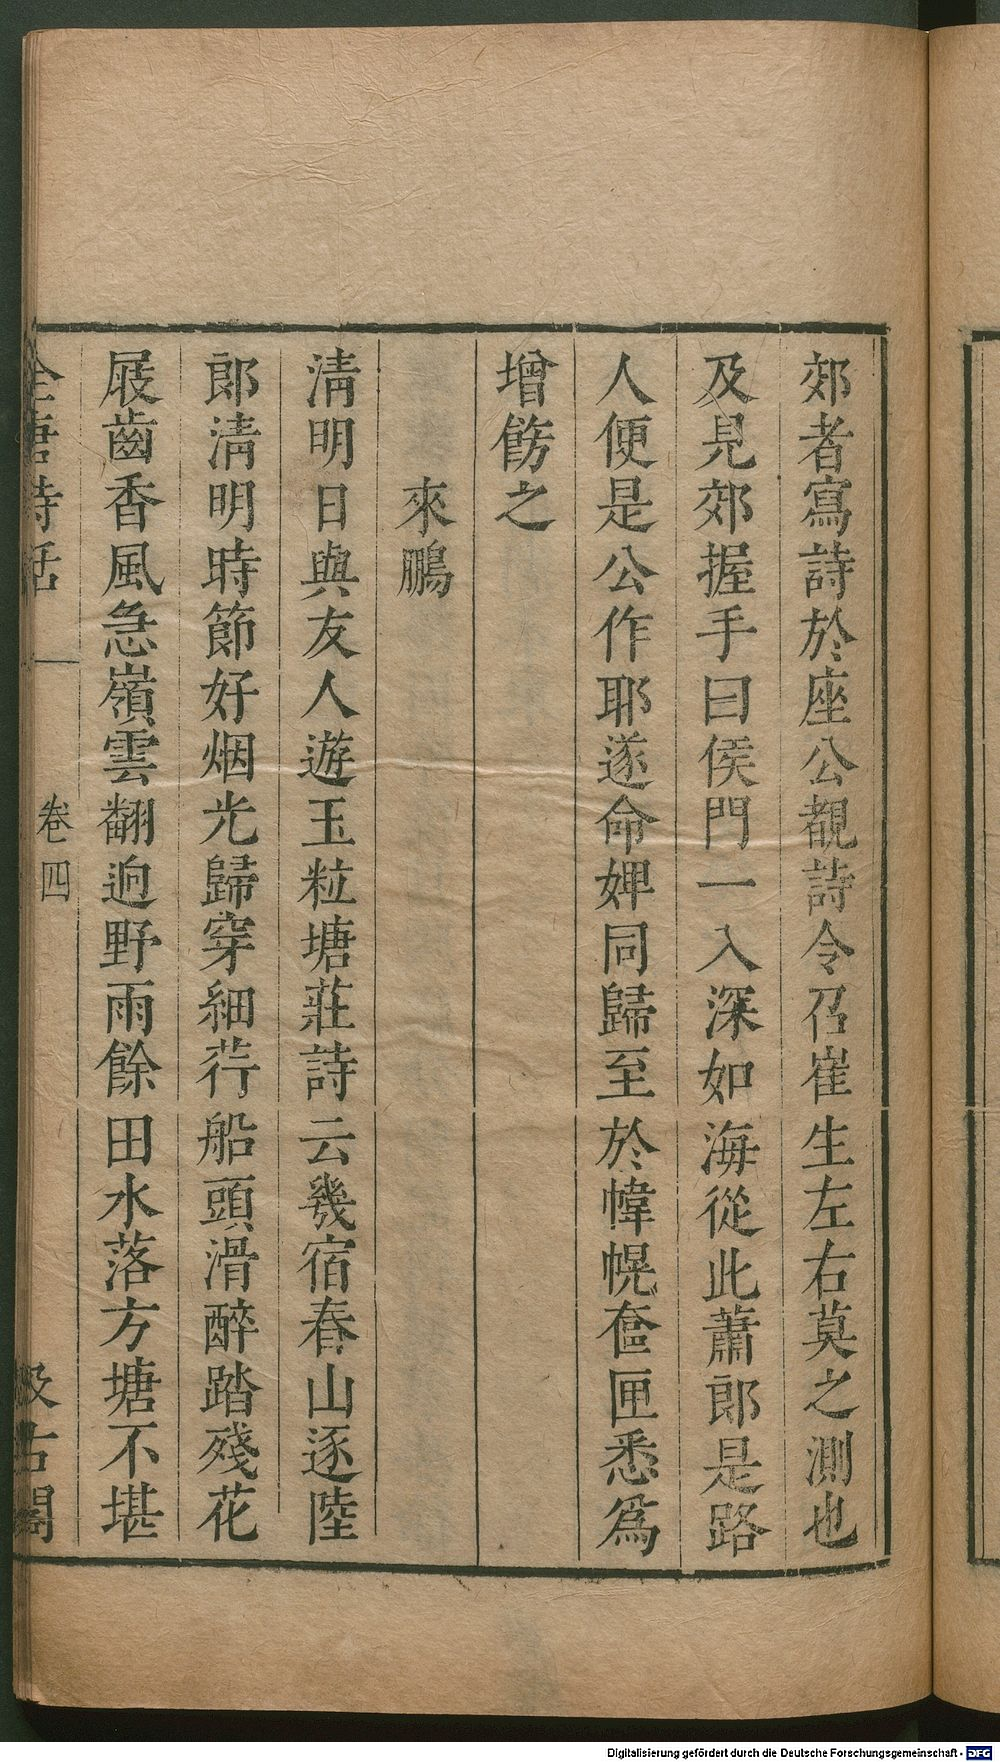 郊者寫詩於座公覩詩令召崔生左右莫之測也
及見郊握手曰侯門一入深如海從此蕭郎是路
人便是公作耶遂命婢同歸至於幃幌奩匣悉爲
增飾之
來鵬
淸明日與友人遊玉粒塘莊詩云幾宿春山逐陸
郎淸明時節好烟光歸穿細荇船頭滑醉踏殘花
屐齒香風急嶺雲翻迥野雨餘田水落方塘不堪
全唐詩話 卷四 汲古閣
Digitalisierung gefördert durch die Deutsche Forschungsgemeinschaft - DFG